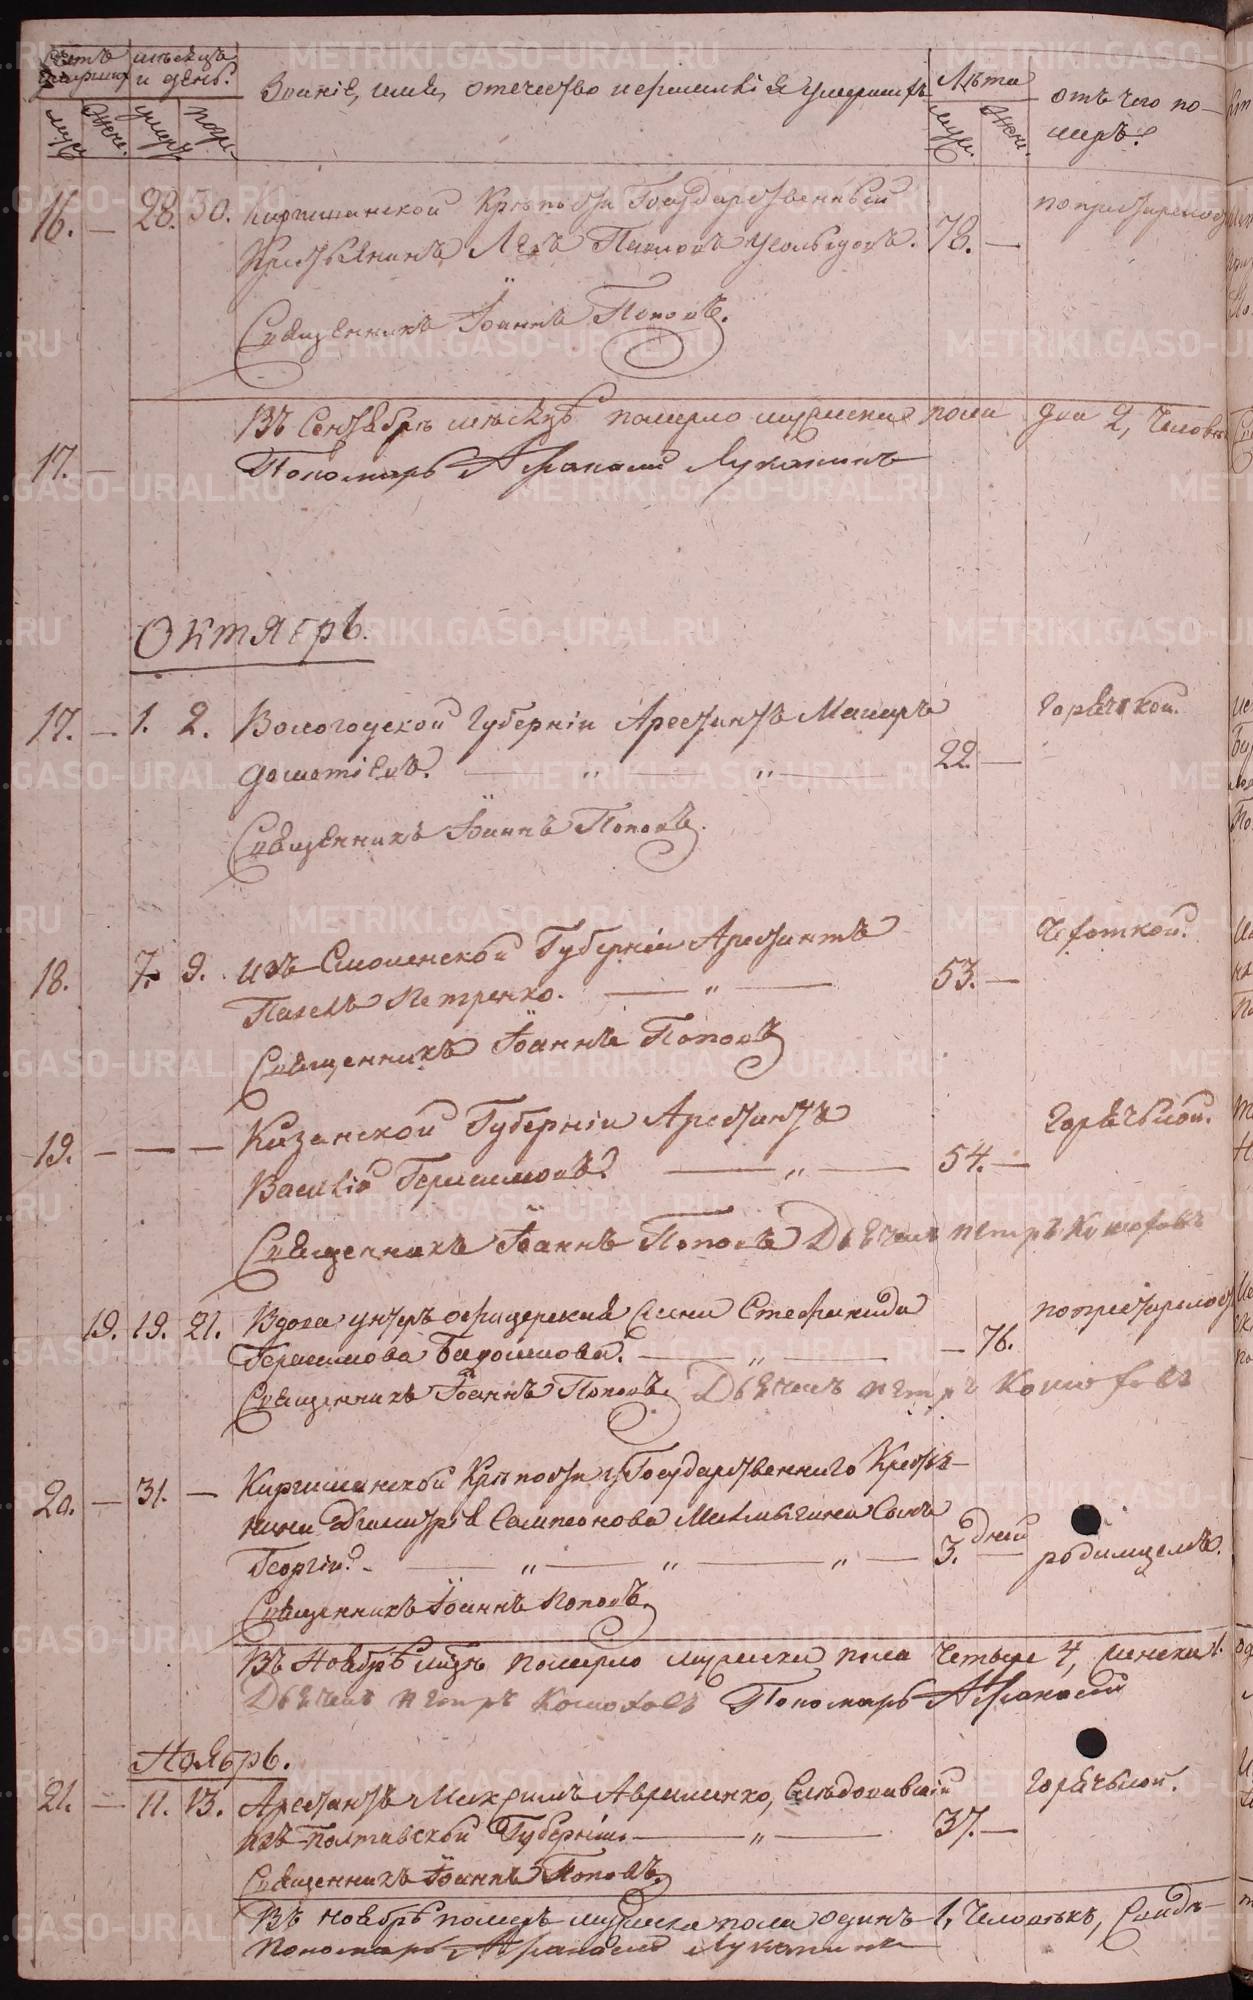 Счетъ умершихъ мѣсяцъ и день. Званіе, имя, отечество и фамилія умершихъ Лѣта отъ чего по-
муж. жен. умер. погр. муж. жен. меръ?
16. — 28. 30. Киргишанской Крѣпости Государственный по престарелости
Крестьянинъ Левъ Павловъ 78. —
Священникъ Іоаннъ Поповъ.
Въ Сентябрѣ мѣсяцѣ померло мужеска пола два 2, человѣка
17. —
Пономарь Афанасій Луканинъ
Октябрь.
17. — 1. 2. Вологодской Губерніи Арестантъ горячкой.
22. —
Священникъ Іоаннъ Поповъ.
18. 7. 9. изъ Смоленской Губерніи Арестантъ Чехоткой.
Павелъ Петренко. — „ — 53. —
Священникъ Іоаннъ Поповъ
19. — — — Казанской Губерніи Арестантъ Горячкой.
Василій Герасимовъ. — „ — 54. —
Священникъ Іоаннъ Поповъ Дьячекъ Петръ
19. 19. 21. Вдова унтеръ офицерская жена Стефанида по престарелости
Герасимова — „ — — 76.
Священникъ Іоаннъ Поповъ. Дьячекъ Петръ
20. — 31. — Киргишанской Крѣпости Государственнаго Крестья-
нина Димитрія Сампсонова сынъ
Георгій. — „ — „ — „ — 3. дней родимцемъ.
Священникъ Іоаннъ Поповъ.
померло мужеска пола четыре 4, женска 1.
Дьячекъ Петръ Пономарь Афанасій
Ноябрь.
21. — 11. 13. Арестантъ Авраменко, слѣдовавшій горячкой.
изъ Полтавской Губерніи. — „ — 37. —
Священникъ Іоаннъ Поповъ.
Въ ноябрѣ померъ мужеска пола одинъ 1, человѣкъ,
Пономарь Афанасій Луканинъ